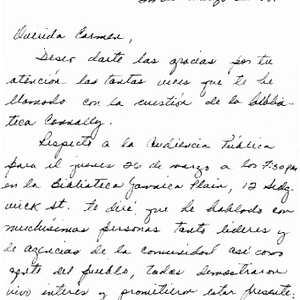 de marzo de
Querida Carmen,
Deseo darte las gracias por tu
atención las tantas veces que te he
llamado con la cuestión de la biblio-
teca Connolly.
Respecto a la Audiencia Pública
para el jueves 26 de marzo a las 7:30 pm
en la Biblioteca Jamaica Plain, 12 Sedg-
wick St. te diré que he hablado con
muchísimas personas tanto líderes y
de agencias de la comunidad así como
gente del pueblo, todas demostraron
vivo interés y prometieron estar presente